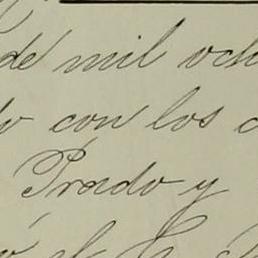 de mil ocho
con los
Prado y
el